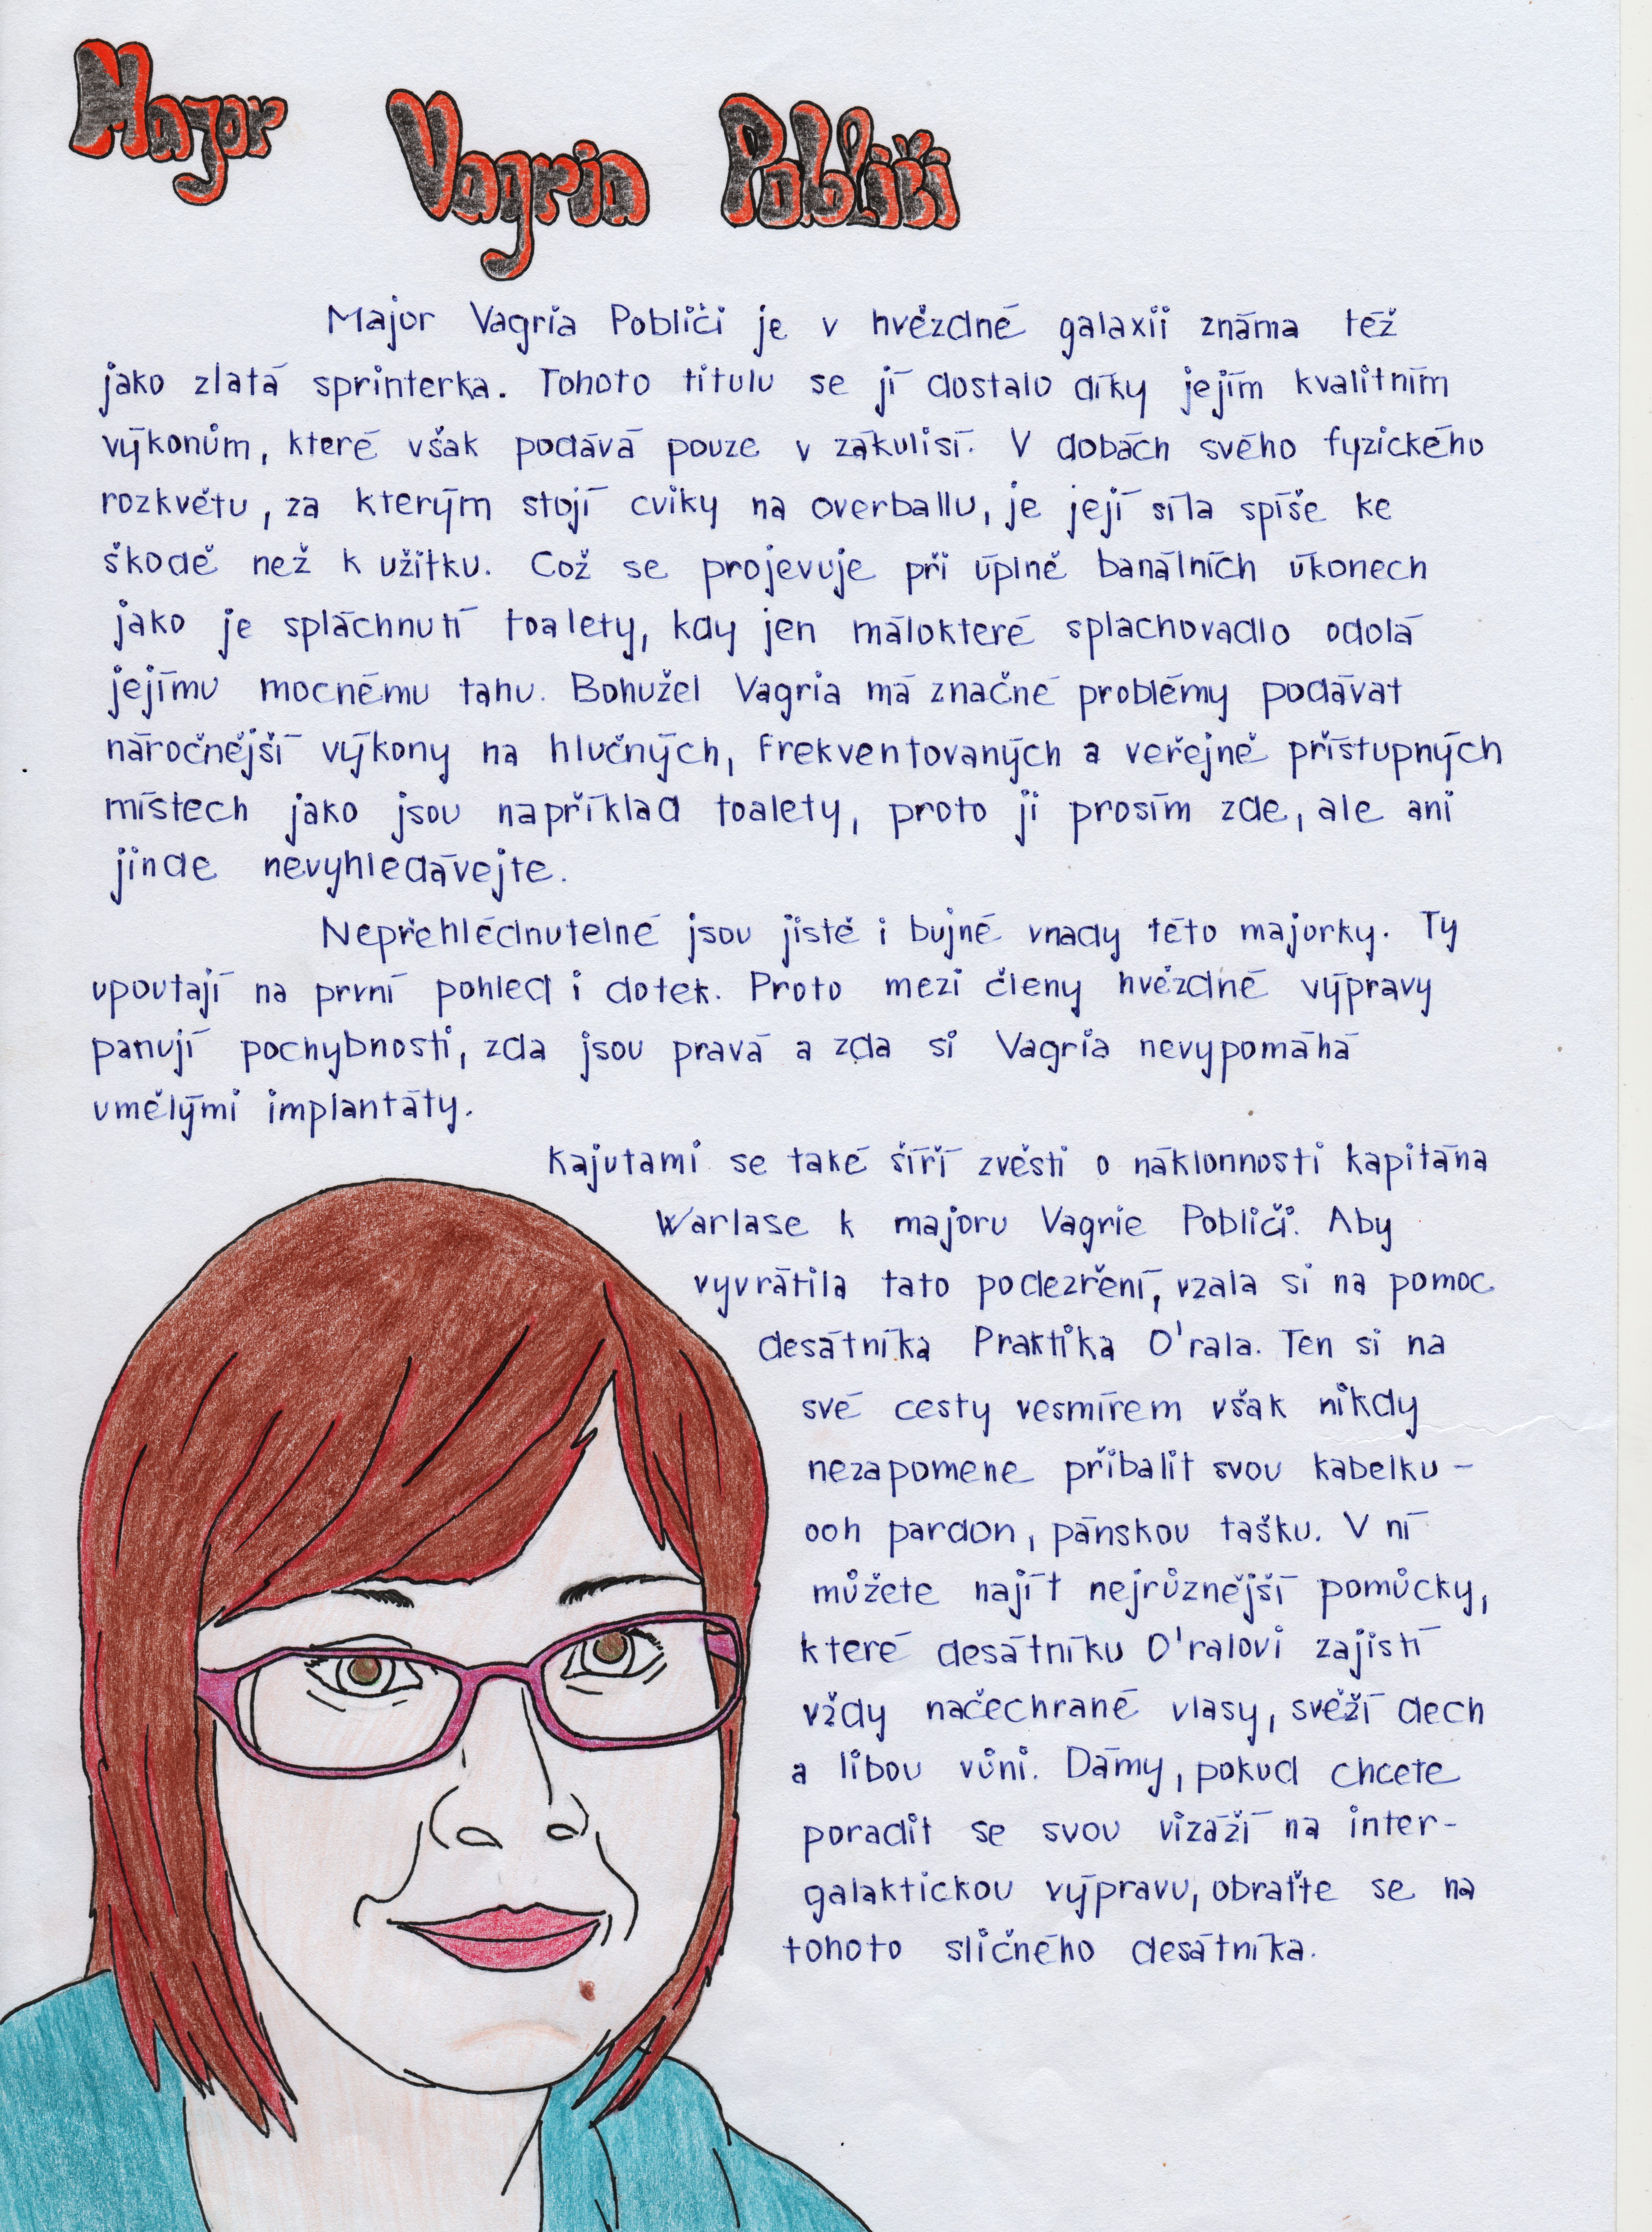 Major Vagria Pobliči
Major Vagria Pobliči je v hvězdné galaxii známa též
jako zlatá sprinterka. Tohoto titulu se jí dostalo díky jejím kvalitním
výkonům, které však podává pouze v zákulisí. V dobách svého fyzického
rozkvětu, za kterým stojí cviky na overballu, je její síla spíše ke
škodě než k užitku. Což se projevuje při úplně banálních úkonech
jako je spláchnutí toalety, kdy jen málokteré splachovadlo odolá
jejímu mocnému tahu. Bohužel Vagria má značné problémy podávat
náročnější výkony na hlučných, frekventovaných a veřejně přístupných
místech jako jsou například toalety, proto ji prosím zde, ale ani
jinde nevyhledávejte.
Nepřehlédnutelné jsou jistě i bujné vnady této majorky. Ty
upoutají na první pohled i dotek. Proto mezi členy hvězdné výpravy
panují pochybnosti, zda jsou pravá a zda si Vagria nevypomáhá
umělými implantáty.
Kajutami se také šíří zvěsti o náklonnosti kapitána
Warlase k majoru Vagrie Pobliči. Aby
vyvrátila tato podezření, vzala si na pomoc
desátníka Praktika O'rala. Ten si na
své cesty vesmírem však nikdy
nezapomene přibalit svou kabelku -
ooh pardon, pánskou tašku. V ní
můžete najít nejrůznější pomůcky,
které desátníku O'ralovi zajistí
vždy načechrané vlasy, svěží dech
a libou vůni. Dámy, pokud chcete
poradit se svou vizáží na inter-
galaktickou výpravu, obraťte se na
tohoto sličného desátníka.